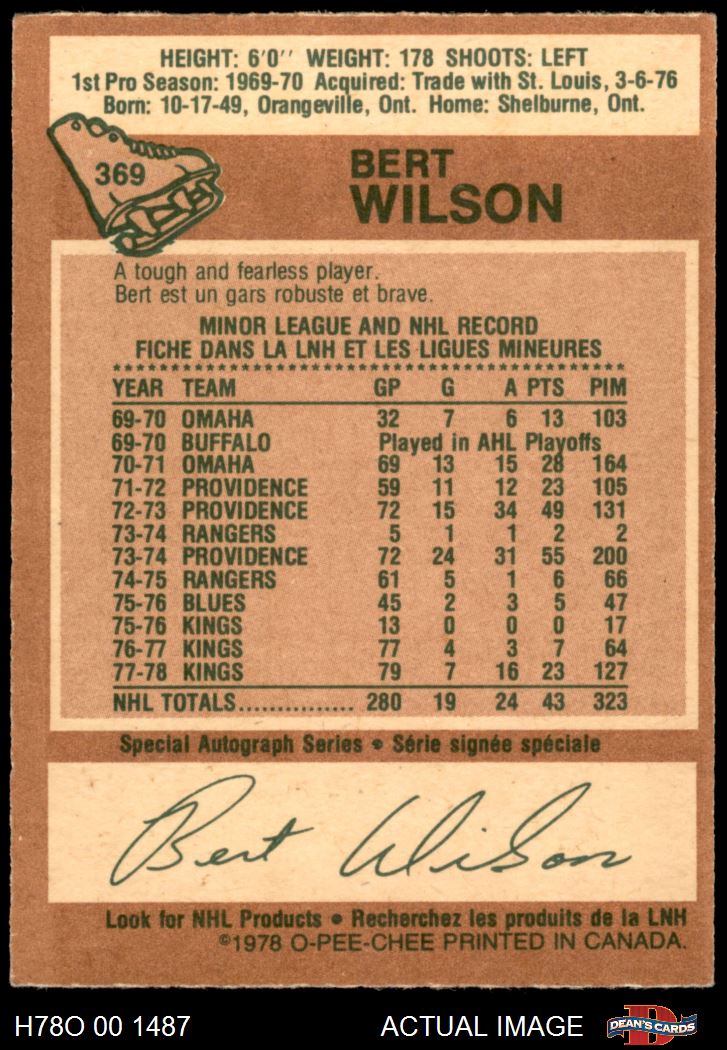 HEIGHT: 6'0'' WEIGHT: 178 SHOOTS: LEFT
1st Pro Season: 1969-70 Acquired: Trade with St. Louis, 3-6-76
Born: 10-17-49, Orangeville, Ont. Home: Shelburne, Ont.
369
BERT
WILSON
A tough and fearless player.
Bert est un gars robuste et brave.
MINOR LEAGUE AND NHL RECORD
FICHE DANS LA LNH ET LES LIGUES MINEURES
YEAR TEAM GP G A PTS PIM
69-70 OMAHA 32 7 6 13 103
69-70 BUFFALO Played in AHL Playoffs
70-71 OMAHA 69 13 15 28 164
71-72 PROVIDENCE 59 11 12 23 105
72-73 PROVIDENCE 72 15 34 49 131
73-74 RANGERS 5 1 1 2 2
73-74 PROVIDENCE 72 24 31 55 200
74-75 RANGERS 61 5 1 6 66
75-76 BLUES 45 2 3 5 47
75-76 KINGS 13 0 0 0 17
76-77 KINGS 77 4 3 7 64
77-78 KINGS 79 7 16 23 127
NHL TOTALS............... 280 19 24 43 323
Special Autograph Series • Série signée spéciale
Bert Wilson
Look for NHL Products • Recherchez les produits de la LNH
©1978 O-PEE-CHEE PRINTED IN CANADA.
H78O 00 1487 ACTUAL IMAGE DEAN'S CARDS